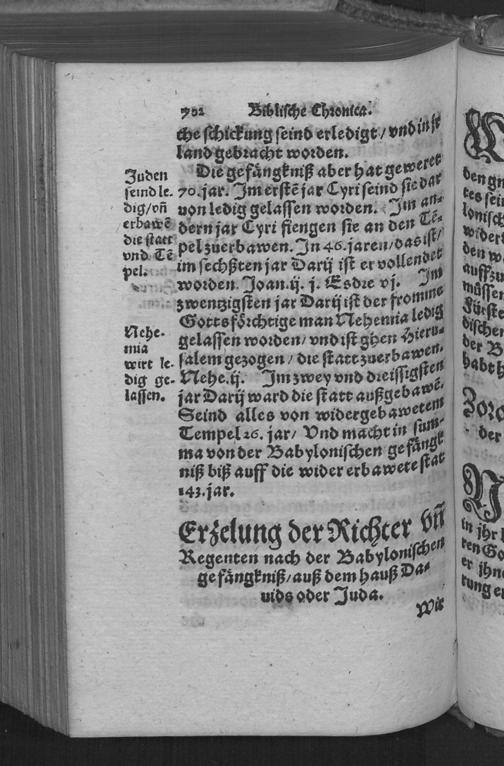 702 Biblische Chronica.
che schickung seind erledigt / vnd in jr
land gebracht worden.
Die gefängkniß aber hat geweret
70. jar. Im erstē jar Cyri seind sie dar
von ledig gelassen worden. Im an-
dern jar Cyri fiengen sie an den Tē-
pel zuerbawen. In 46. jaren / das ist /
im sechßten jar Darij ist er vollendet
worden. Joan. ij. j. Esdre vj. Im
zwentzigsten jar Darij ist der fromme
Gottsförchtige man Nehemia ledig
gelassen worden / vnd ist ghen Hieru-
salem gezogen / die statt zuerbawen.
Nehe. ij. Im zwey vnd dreissigsten
jar Darij ward die statt außgebawē.
Seind alles von widergebawetem
Tempel 26. jar / Vnd macht in sum-
ma von der Babylonischen gefängk
niß biß auff die widererbawete stat
143. jar.
Juden
seind le.
dig / vñ
erbawē
die statt
vnd Tē
pel.
Nehe-
mia
wirt le-
dig ge-
lassen.
Erzelung der Richter vñ
Regenten nach der Babylonischen
gefängkniß / auß dem hauß Da-
uids oder Juda.
Wie
den gn
tes sei
lonisch
wider
den w
auffzu
müssen
Fürste
dischen
der B
habt h
Zoro
der
in jhr l
ren Go
er jhne
rung e